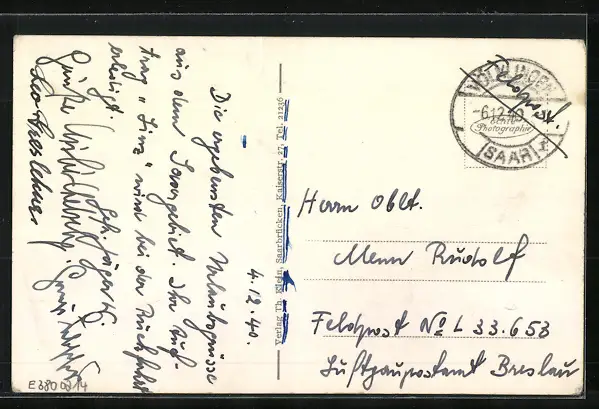 4.12.40.
Die ergebensten Urlaubsgrüsse
aus dem Saargebiet. Ihr Auf-
trag "Linz" wird bei der Rückfahrt
erledigt.
Verlag Th. Klein, Saarbrücken, Kaiserstr. 27, Tel. 21236
VÖLKLINGEN
-6.12.40
(SAAR)
Echte
Photographie
Herrn Oblt.
Menn Rudolf
Feldpost No L 33.653
Luftgaupostamt Breslau
E3800914